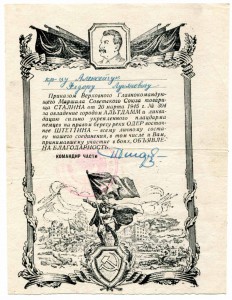 кр-цу Алексейчук
Федору Лукьяновичу
Приказом Верховного Главнокомандующего
Маршала Советского Союза товарища
СТАЛИНА от 20 марта 1945 г. № 304
за овладение городом АЛЬТДАММ и ликвидацию
сильно укрепленного плацдарма
немцев на правом берегу реки ОДЕР восточнее
ШТЕТТИНА — всему личному составу
нашего соединения, в том числе и Вам,
принимавшему участие в боях, ОБЪЯВЛЕНА
БЛАГОДАРНОСТЬ.
КОМАНДИР ЧАСТИ